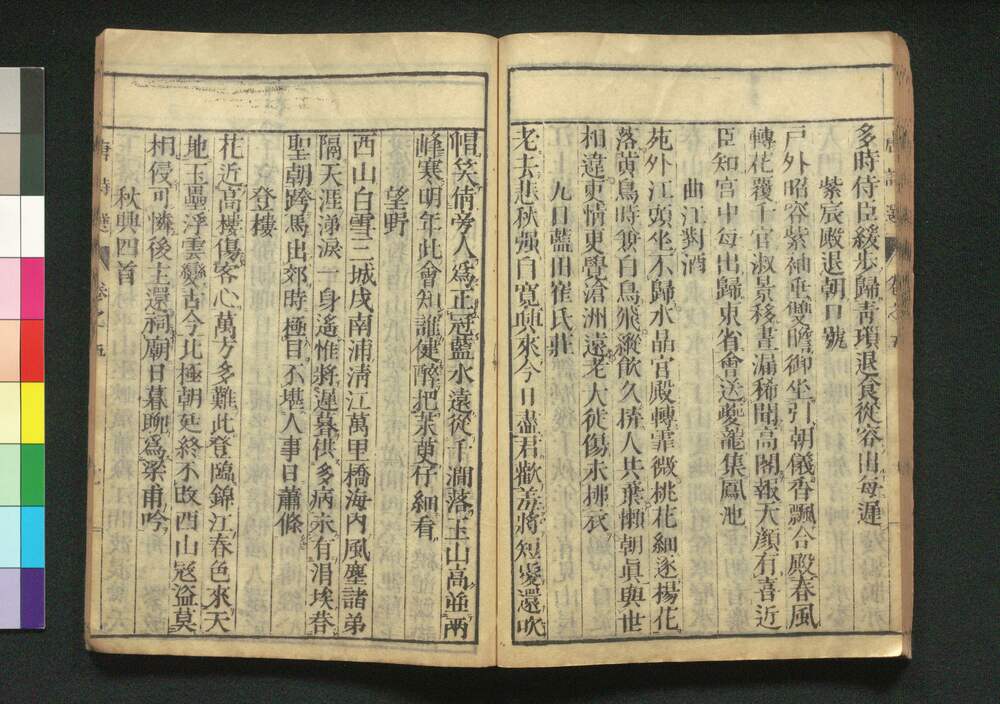 多時侍臣緩步歸青瑣退食從容出每遲
紫宸殿退朝口號
戶外昭容紫袖垂雙瞻御坐引朝儀香飄合殿春風
轉花覆千官淑景移晝漏稀聞高閣報天顏有喜近
臣知宮中每出歸東省會送夔龍集鳳池
曲江對酒
苑外江頭坐不歸水晶宮殿轉霏微桃花細逐楊花
落黃鳥時兼白鳥飛縱飲久拚人共棄懶朝真與世
相違吏情更覺滄洲遠老大徒傷未拂衣
九日藍田崔氏莊
老去悲秋強自寬興來今日盡君歡羞將短髮還吹
帽笑倩旁人爲正冠藍水遠從千澗落玉山高並兩
峰寒明年此會知誰健醉把茱萸仔細看
望野
西山白雪三城戍南浦清江萬里橋海內風塵諸弟
隔天涯涕淚一身遙惟將遲暮供多病未有涓埃荅
聖朝跨馬出郊時極目不堪人事日蕭條
登樓
花近高樓傷客心萬方多難此登臨錦江春色來天
地玉壘浮雲變古今北極朝廷終不改西山寇盜莫
相侵可憐後主還祠廟日暮聊爲梁甫吟
秋興四首
唐詩選 卷之五